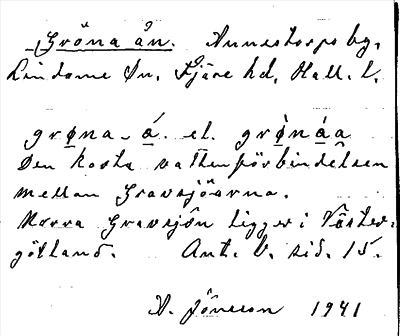 Gröna ån. Annestorps by,
Lindome sn, Fjäre hd, Hall. l.
grøna - á. el. grǿnáa
Den korta vattenförbindelsen
mellan Gravsjöarna.
Norra Gravsjön ligger i Väster-
götland. Ant. b. sid. 15.
A. Jönsson 1941